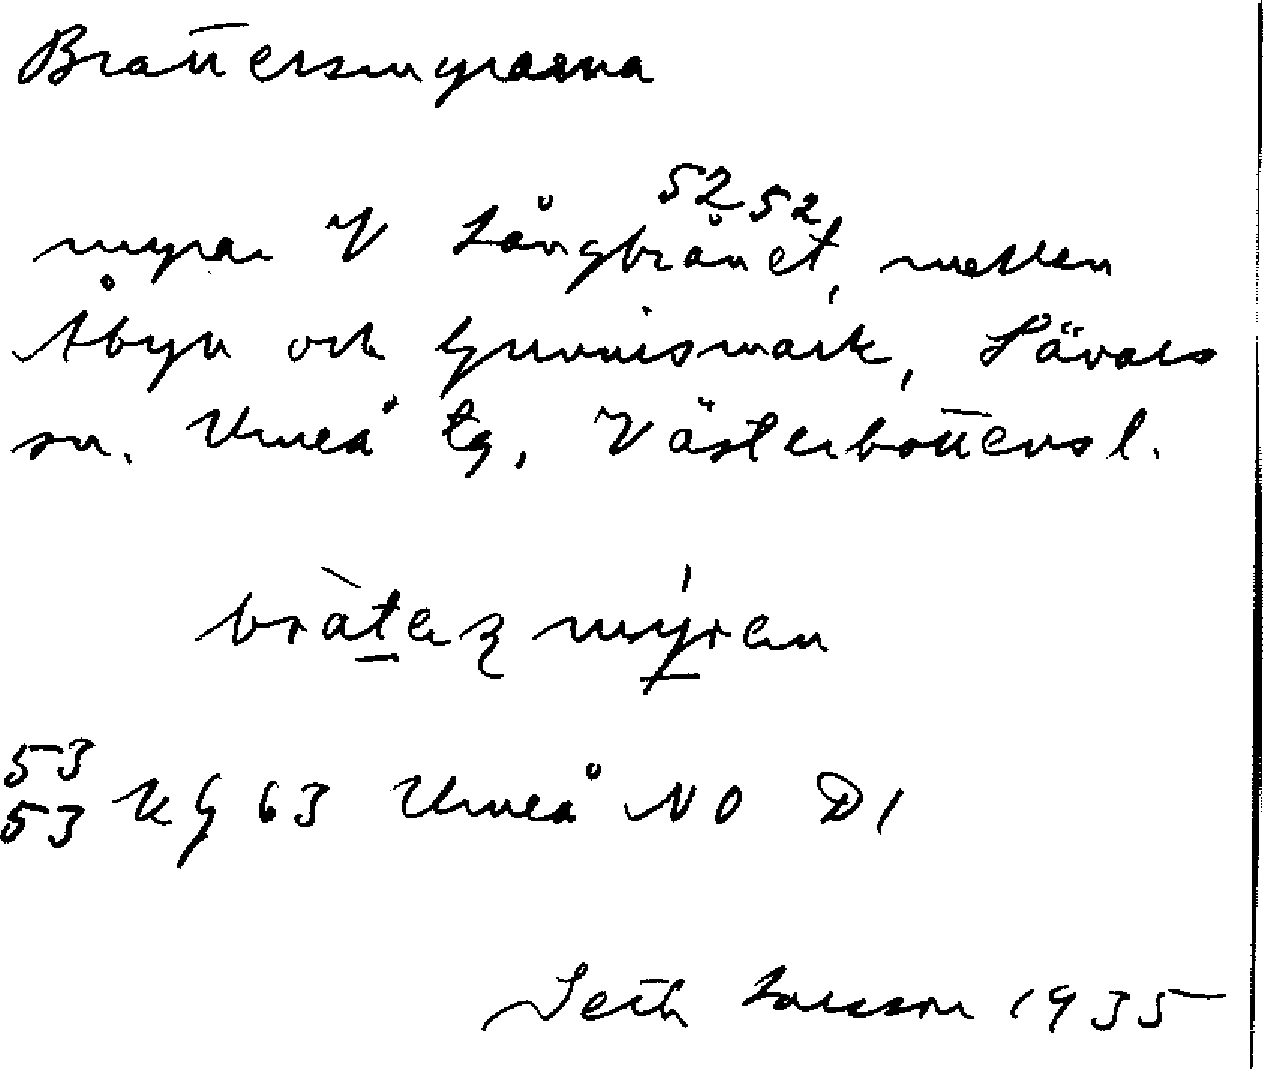 Brattersmyrarna
52 52
myrar V Långbrånet, mellan
Åbyn och Gunnismark, Sävars
sn. Umeå tg, Västerbottens l.
bràtezmýran
53
53 KG 63 Umeå NO D1
Seth Larsson 1935